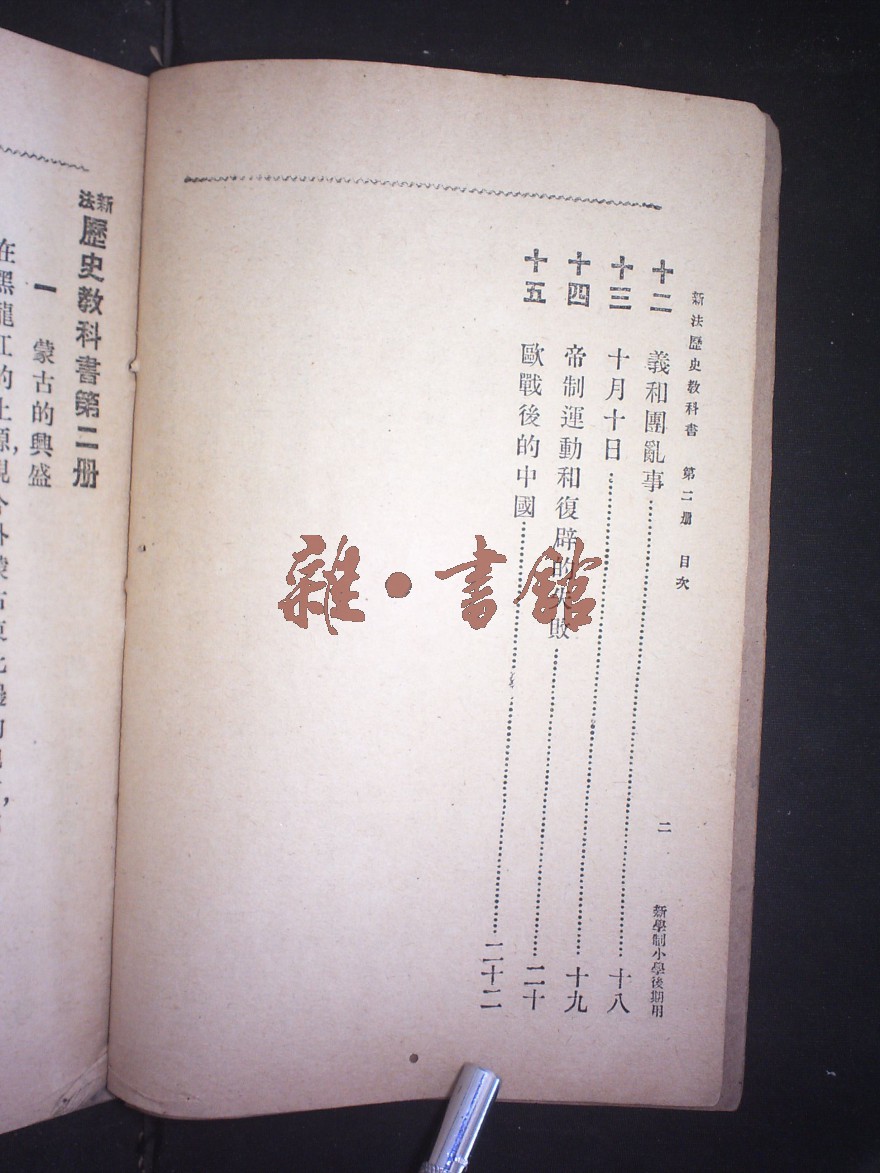 新法歷史教科書 第二册 目次 二 新學制小學後期用
十二 義和團亂事……十八
十三 十月十日……十九
十四 帝制運動和復辟的失敗……二十
十五 歐戰後的中國……二十二
雜·書館
新法歷史教科書第二册
一 蒙古的興盛
在黑龍江的上源,現今外蒙古東北邊的